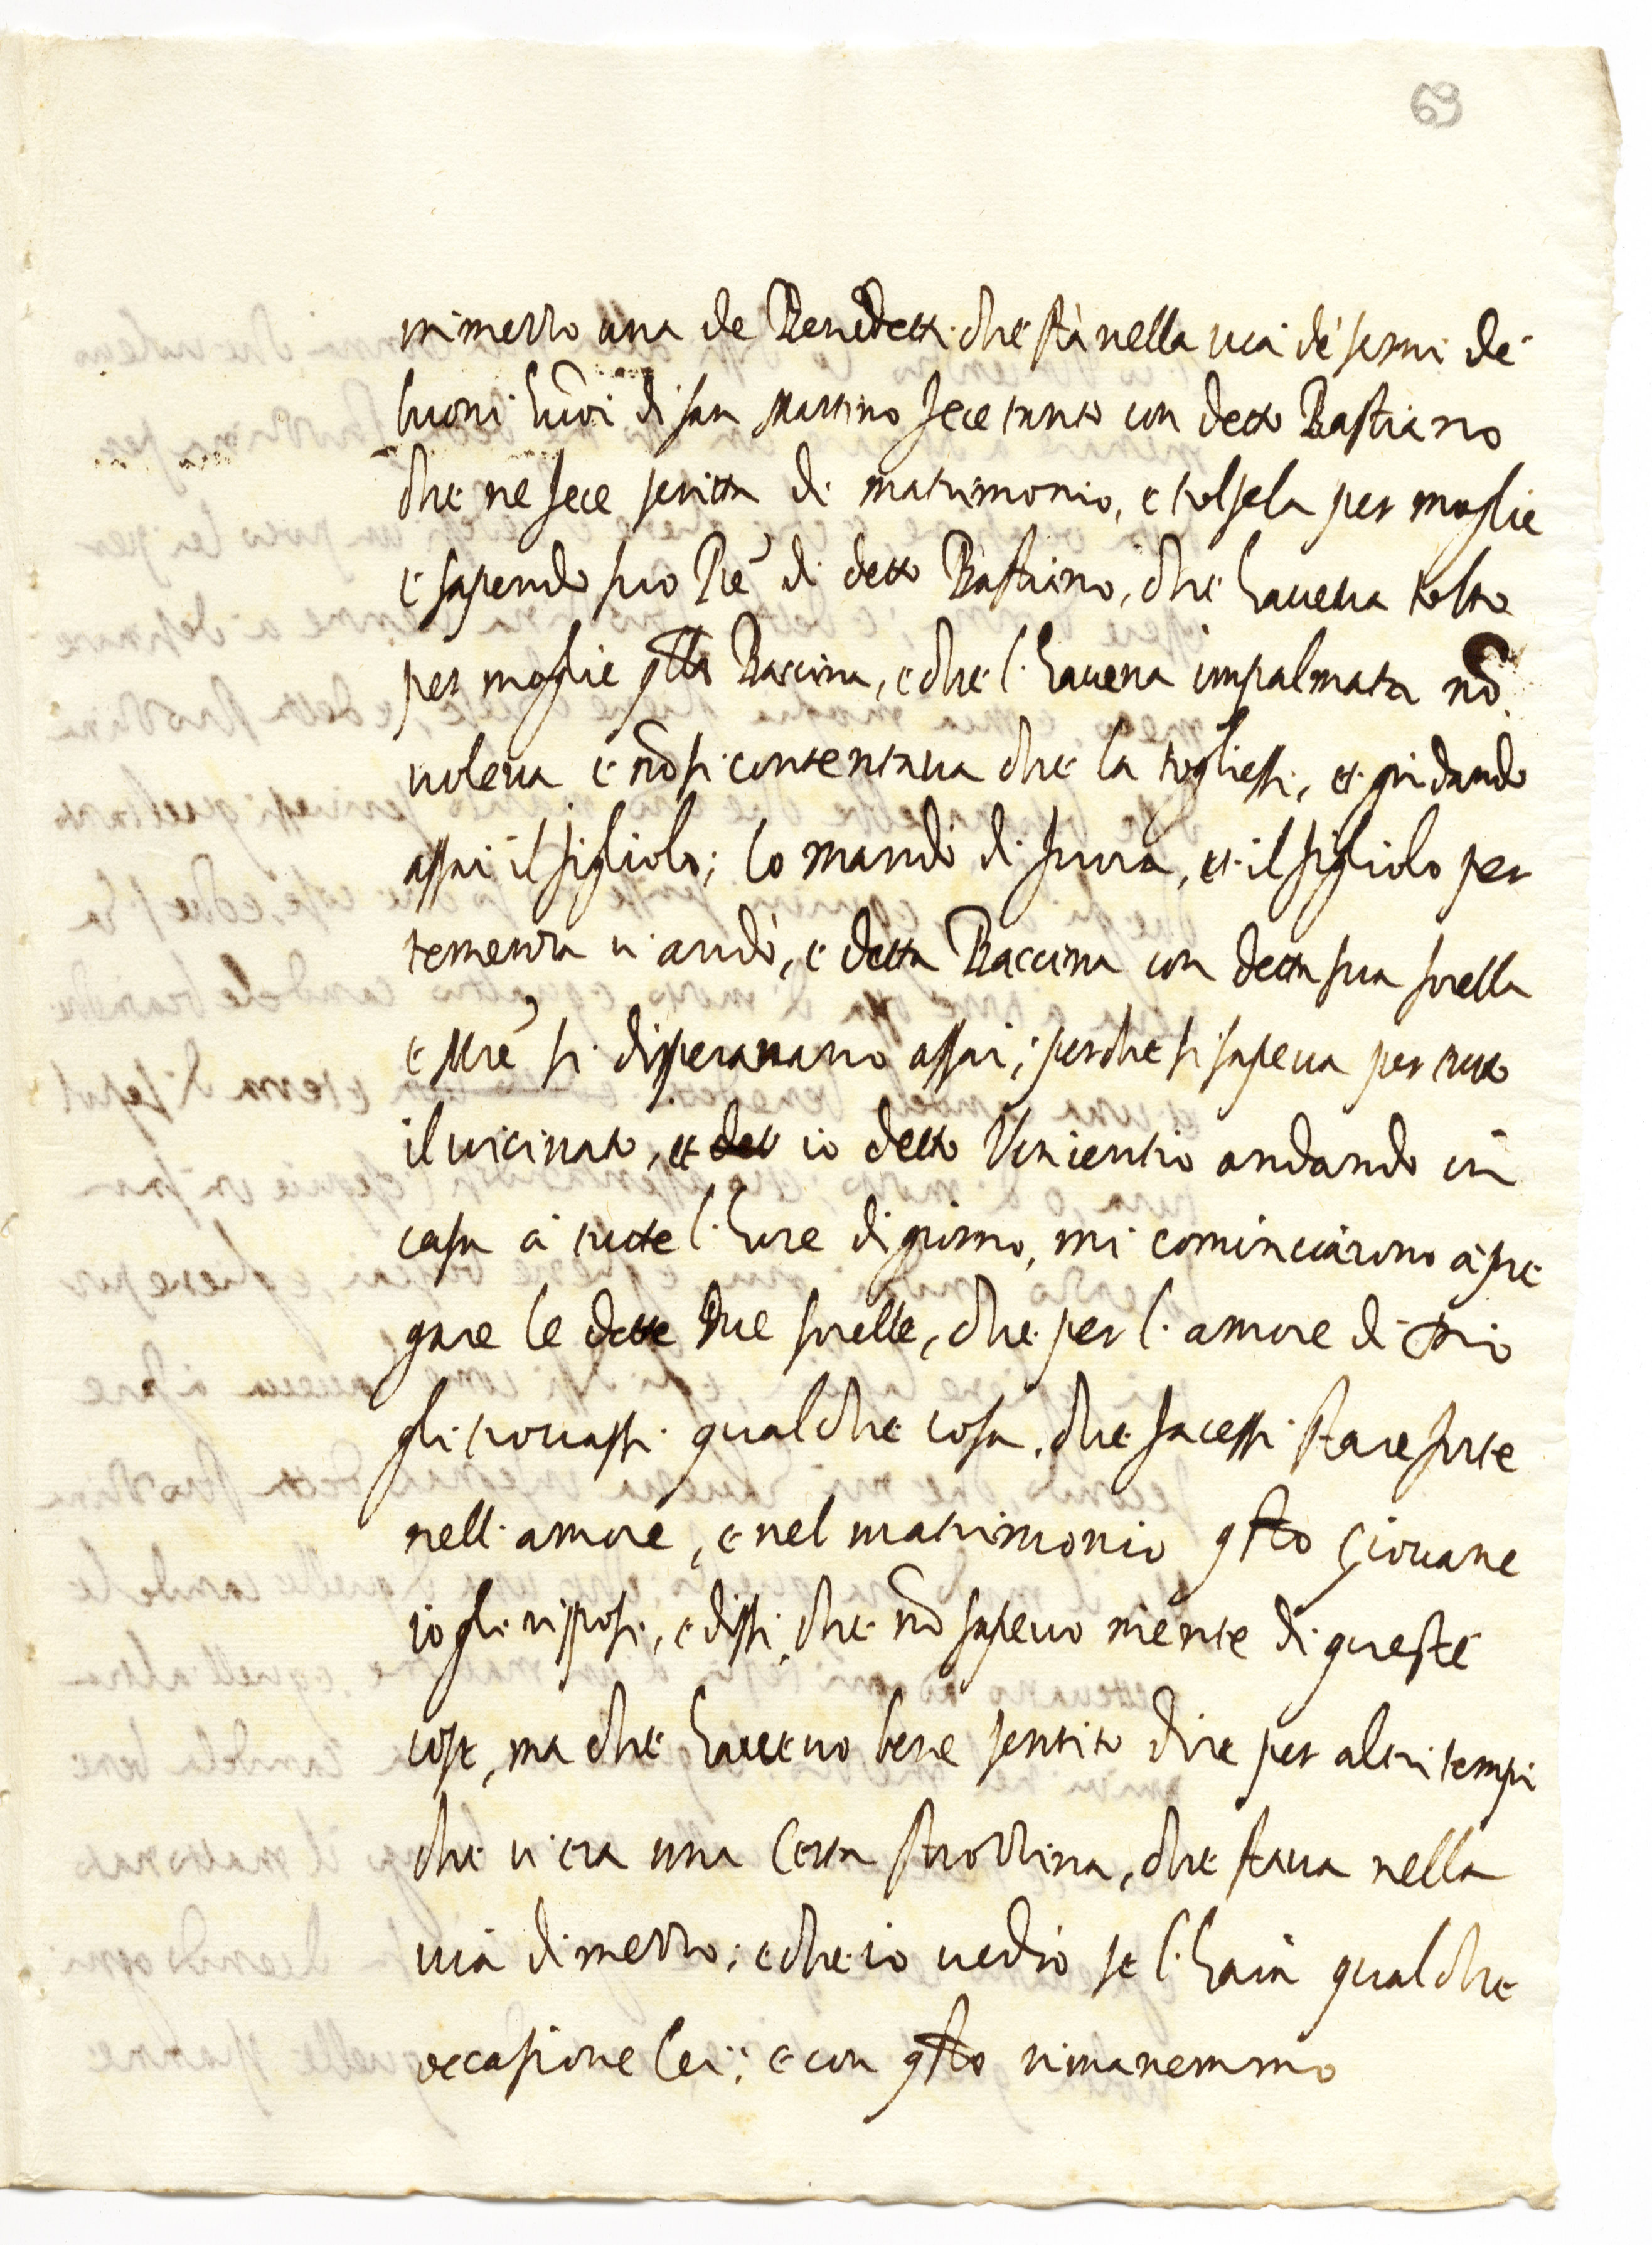 69
in mezzo una de Benedetti che stà nella via de serui de
buoni huoi di san Martino fece tanto con detto Bastiano
che ne fece scritta di matrimonio, e tolsela per moglie
e sapendo suo Pre di detto Bastiano, che haueua tolto
per moglie qsta Baccina, e che l'haueua impalmata nō
uoleua e nō si contentaua che la togliessi, et gridando
assai il figliolo; lo mandò di fuora, et il figliolo per
temenza u'andò, e detta Baccina con detta sua sorella
e Mre si disperauano assai; perche si sapeua per tutto
il uicinato, et det io detto Vincentio andando in
casa à tutte l'hore di giorno, mi cominciarono à pre
gare le dette due sorelle, che per l'amore di Dio
gli trouassi qualche cosa, che facessi stare forte
nell'amore, e nel matrimonio qsto giouane
io gli risposi, e dissi, che nō sapeuo niente di queste
cose, ma che haueuo bene sentito dire per altri tempi
che u'era una certa strozzina, che staua nella
uia di mezzo; e che io uedrò se l'haià qualche
occasione lei; e con qsto rimanemmo